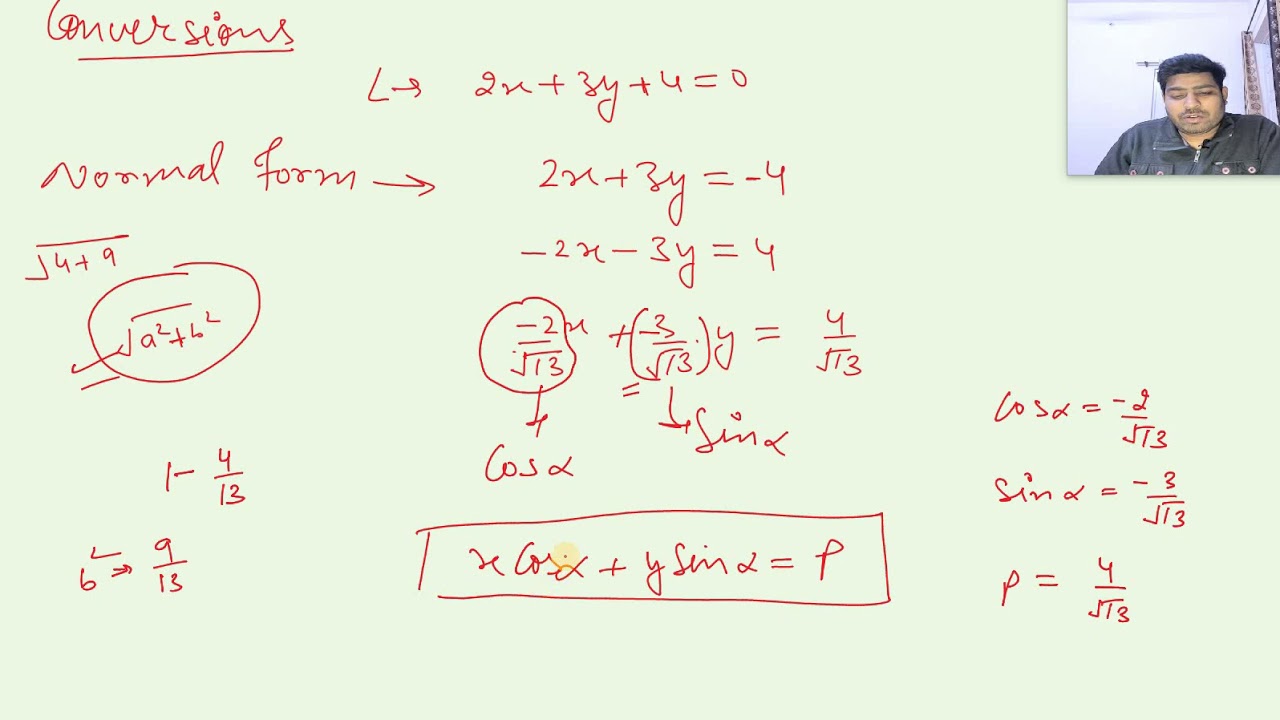 Conversions
L→ 2x+3y+4=0
Normal form → 2x+3y=-4
√4+9
-2x-3y=4
√a²+b²
-2/√13 x +(-3/√13)y = 4/√13
Cosα
Sinα
Cosα = -2/√13
Sinα = -3/√13
1- 4/13
b² ⇒ 9/13
x Cosα + y Sinα = P
P = 4/√13